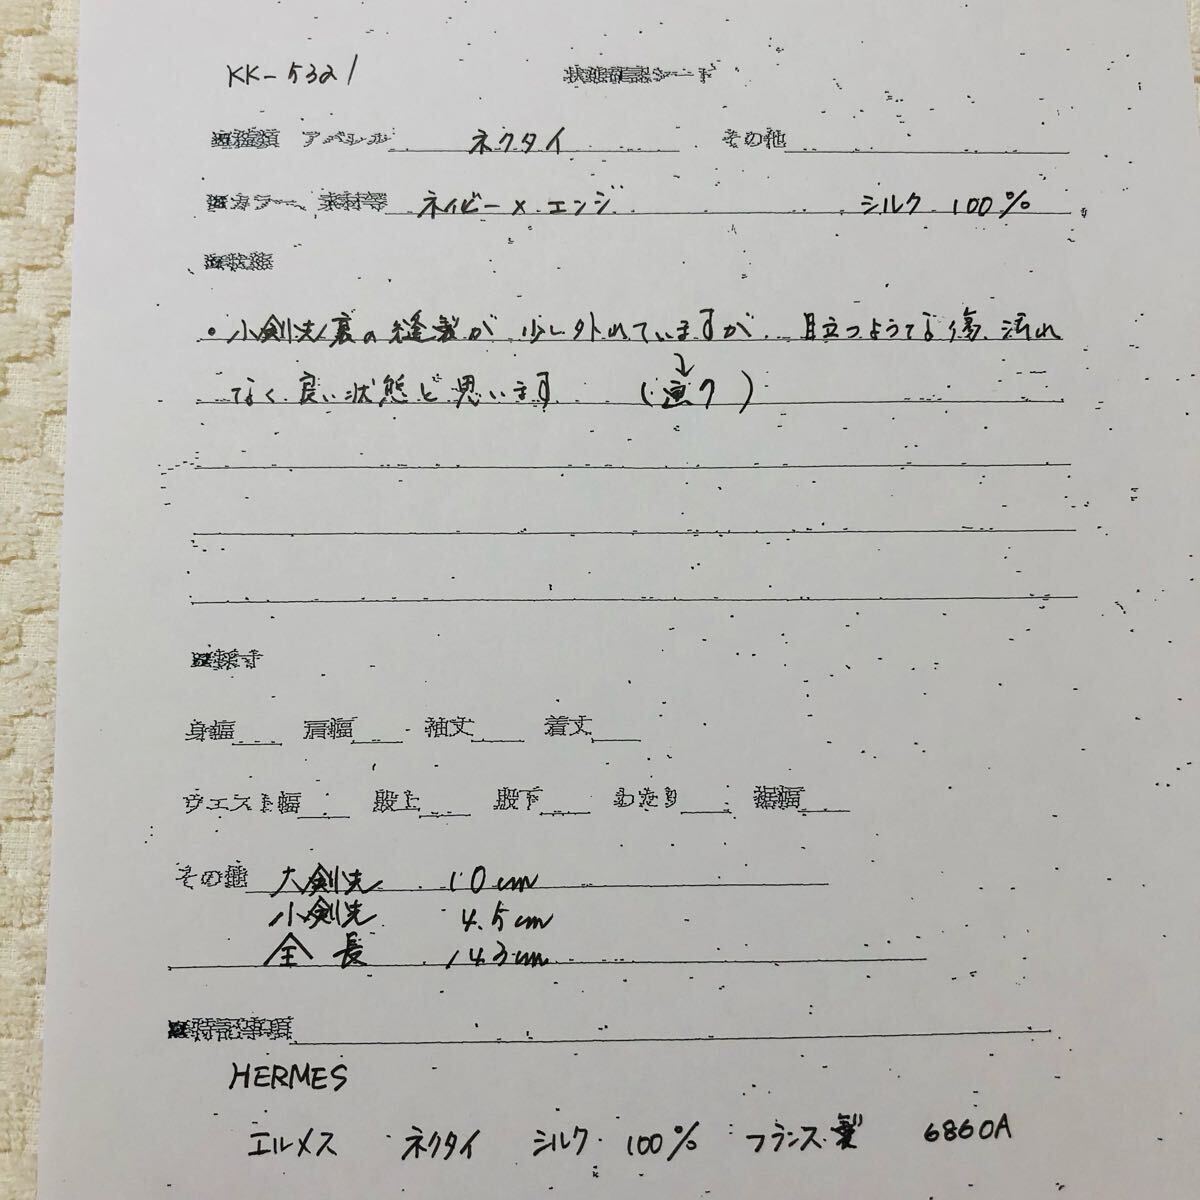 KK-5321 状態確認シート
アパレル ネクタイ その他
※カラー、素材等 ネイビー×エンジ シルク 100%
※状態
・小剣先裏の縫製が少し外れていますが、目立つような傷、汚れ
なく良い状態と思います (画7)
※採寸
身幅 肩幅 袖丈 着丈
ウエスト幅 股上 股下 わたり 裾幅
その他 大剣先 10cm
小剣先 4.5cm
全長 143cm
※特記事項
HERMES
エルメス ネクタイ シルク 100% フランス製 6860A